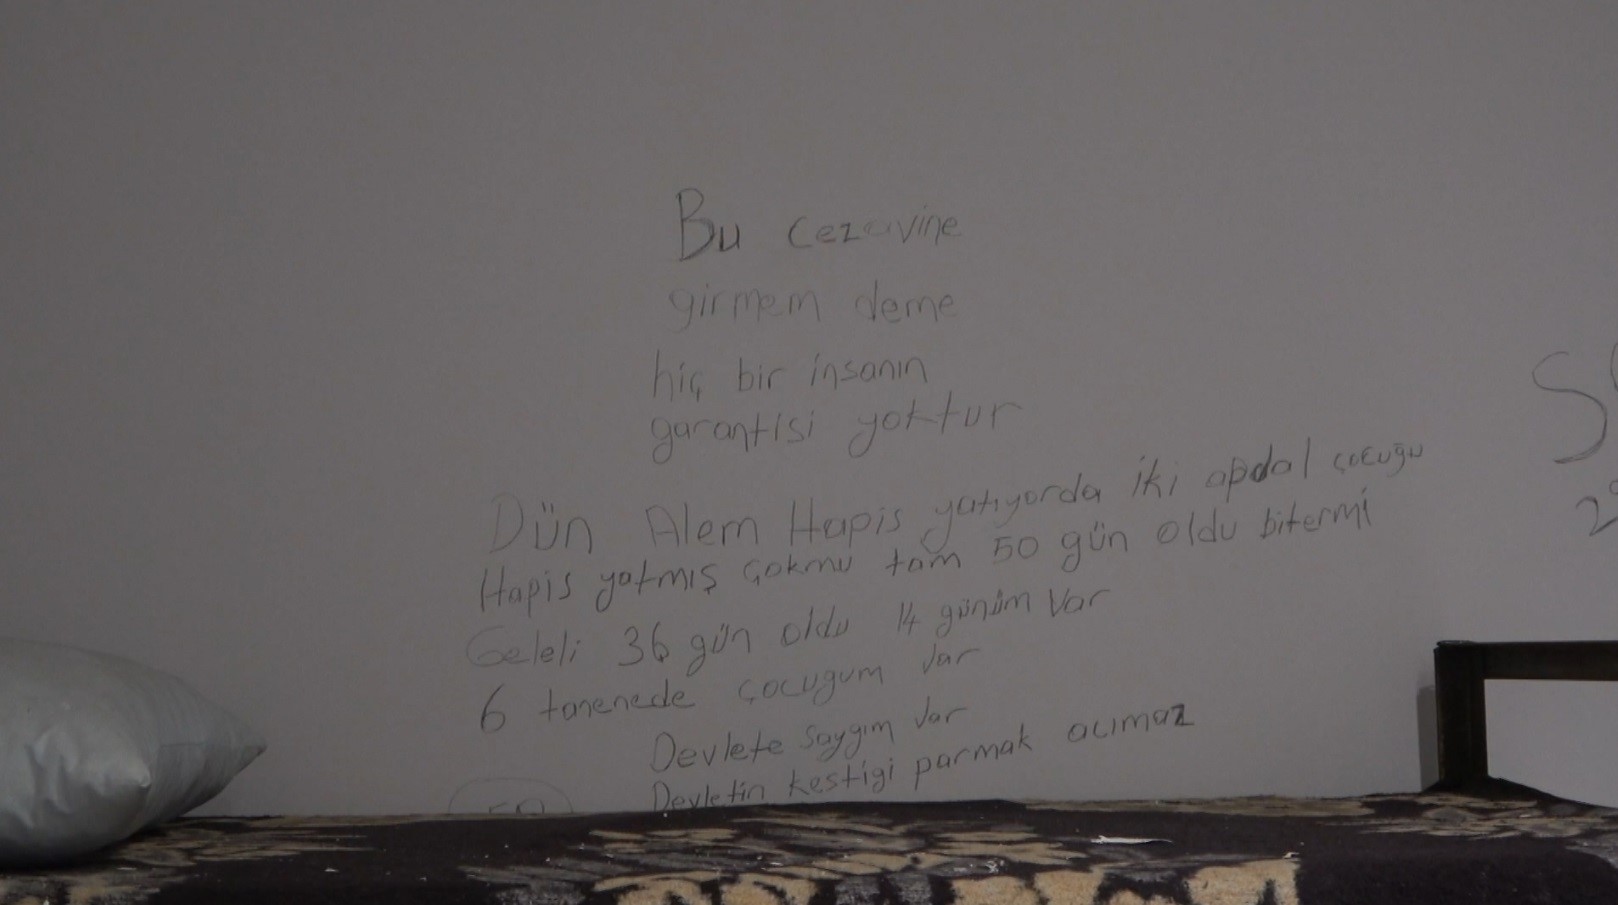 Bu cezavine
girmem deme
hiç bir insanın
garantisi yoktur
Dün Alem Hapis yatıyorda iki apdal çocuğu
Hapis yatmış çokmu tam 50 gün oldu bitermi
Geleli 36 gün oldu 14 günüm Var
6 tanenede çocugum Var
Devlete saygım Var
Devletin kestigi parmak acımaz
50